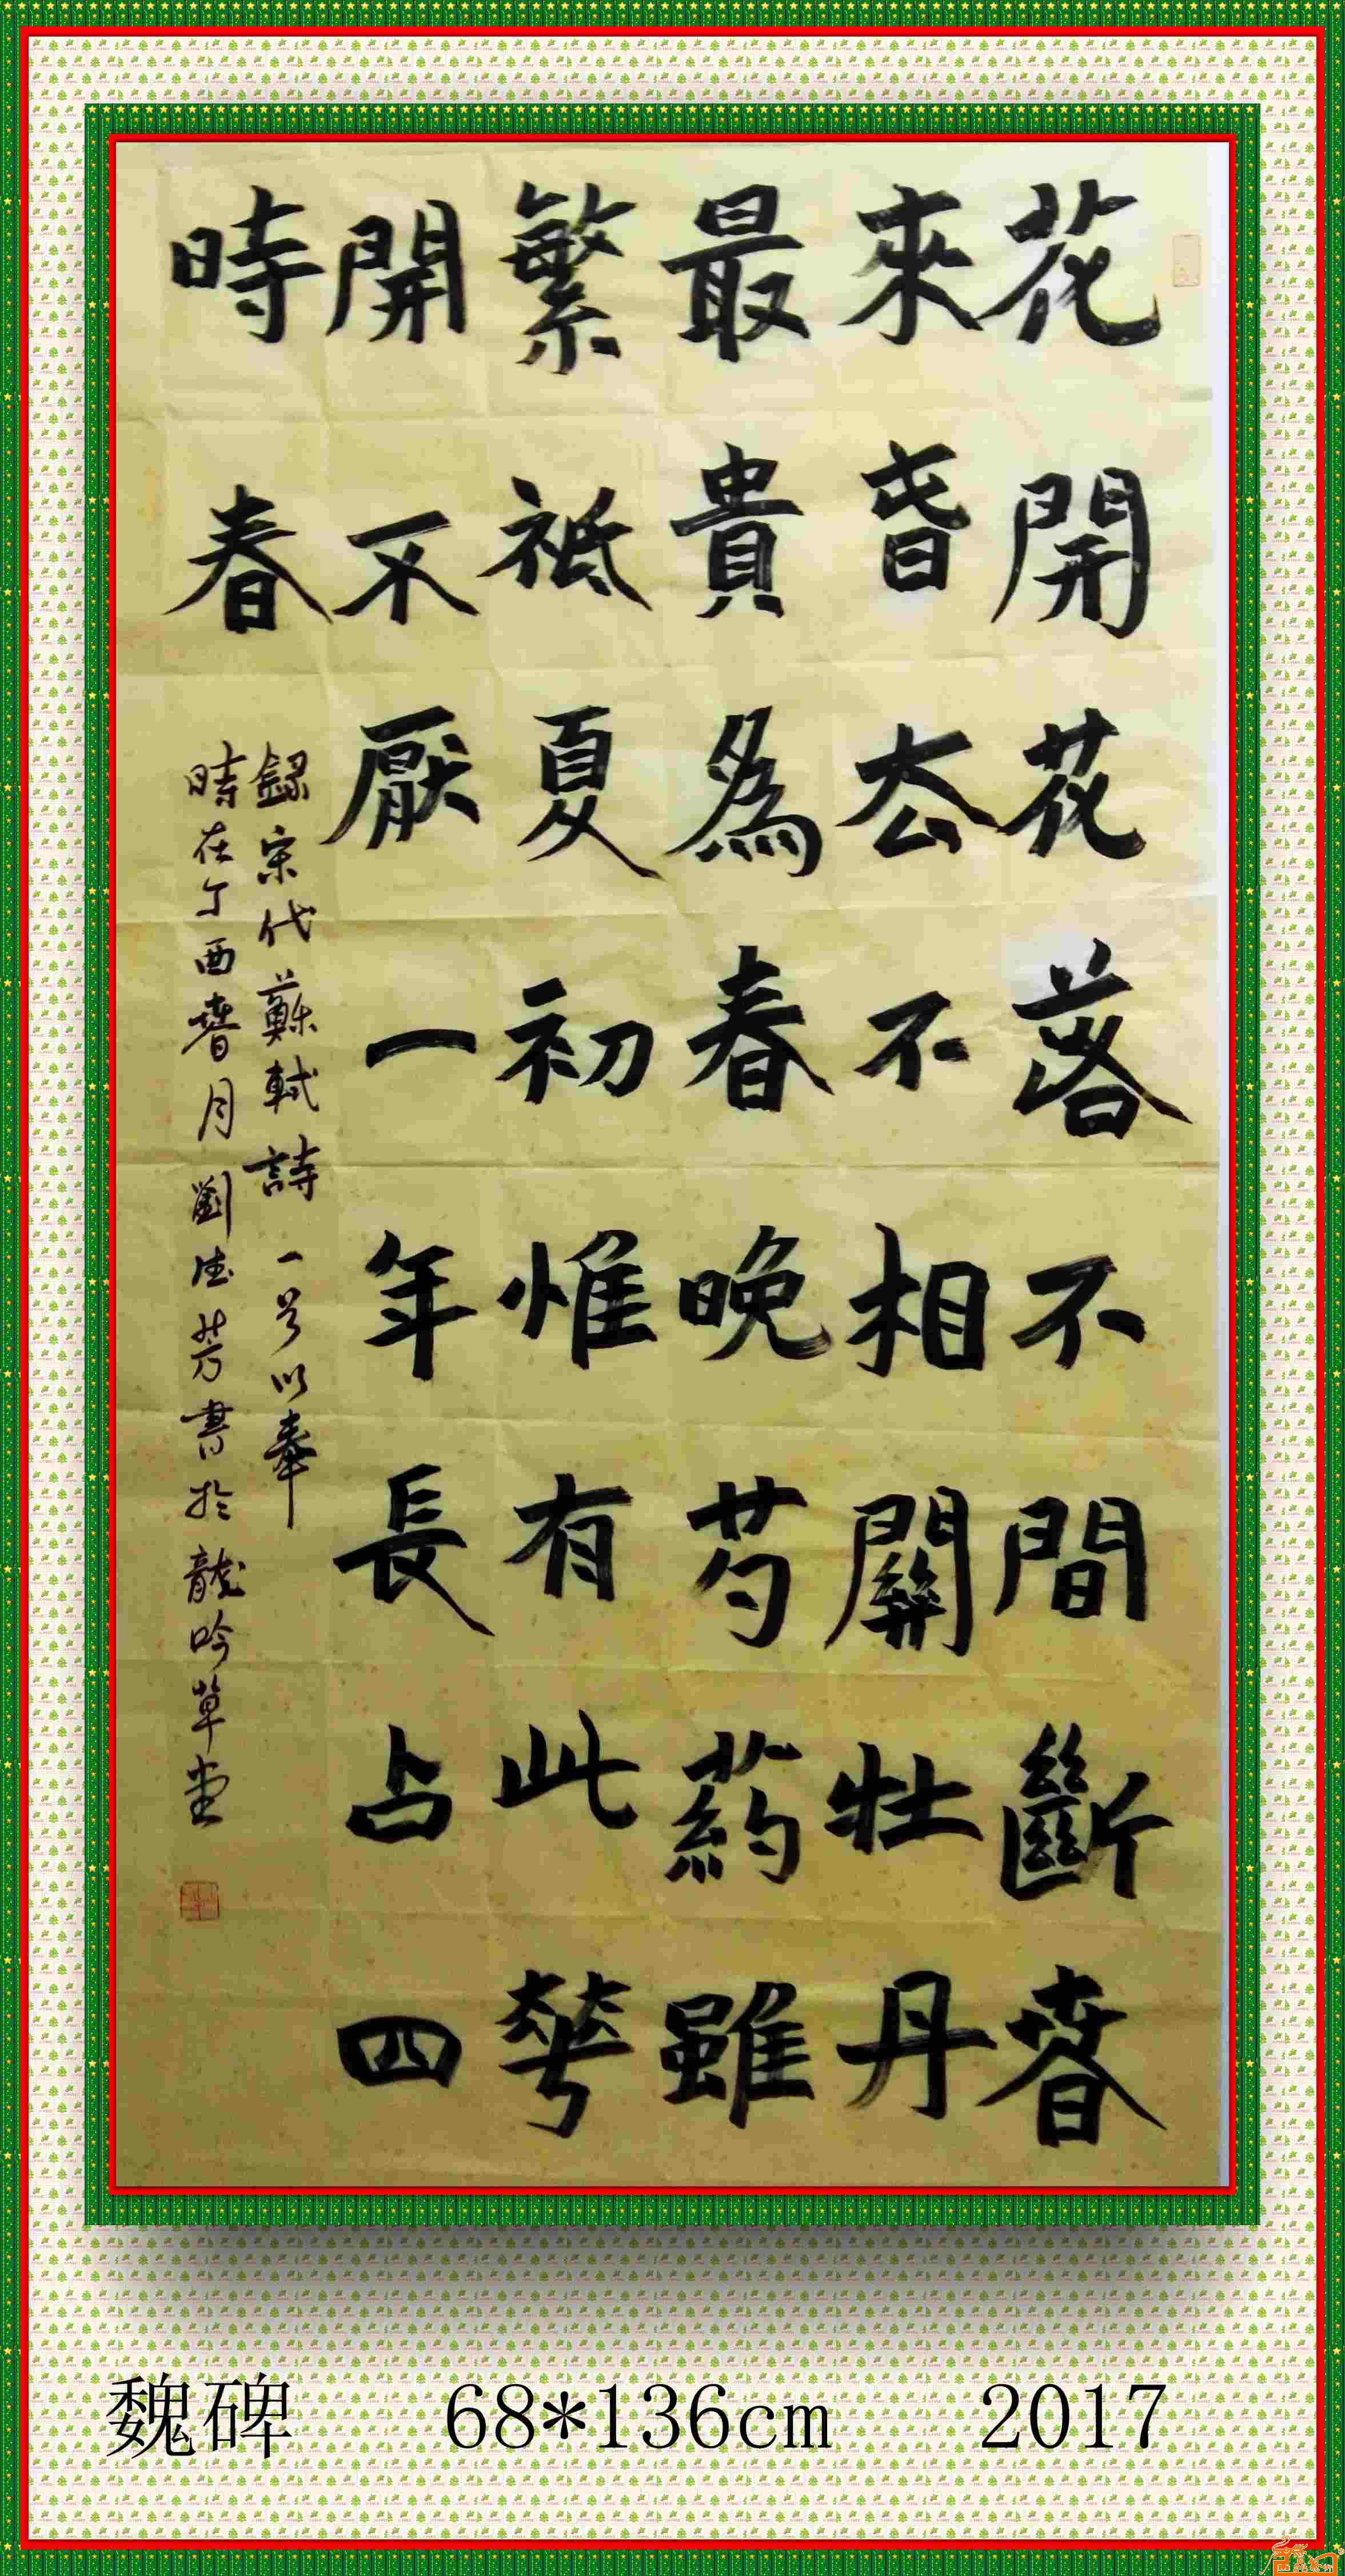 花開花落不間斷春
來春去不相關牡丹
最貴為春晚芍藥雖
繁祇夏初惟有此花
開不厭一年長占四
時春
錄宋代蘇軾詩一首以奉
時在丁酉春月劉德芳書於龍吟草堂
魏碑 68*136cm 2017